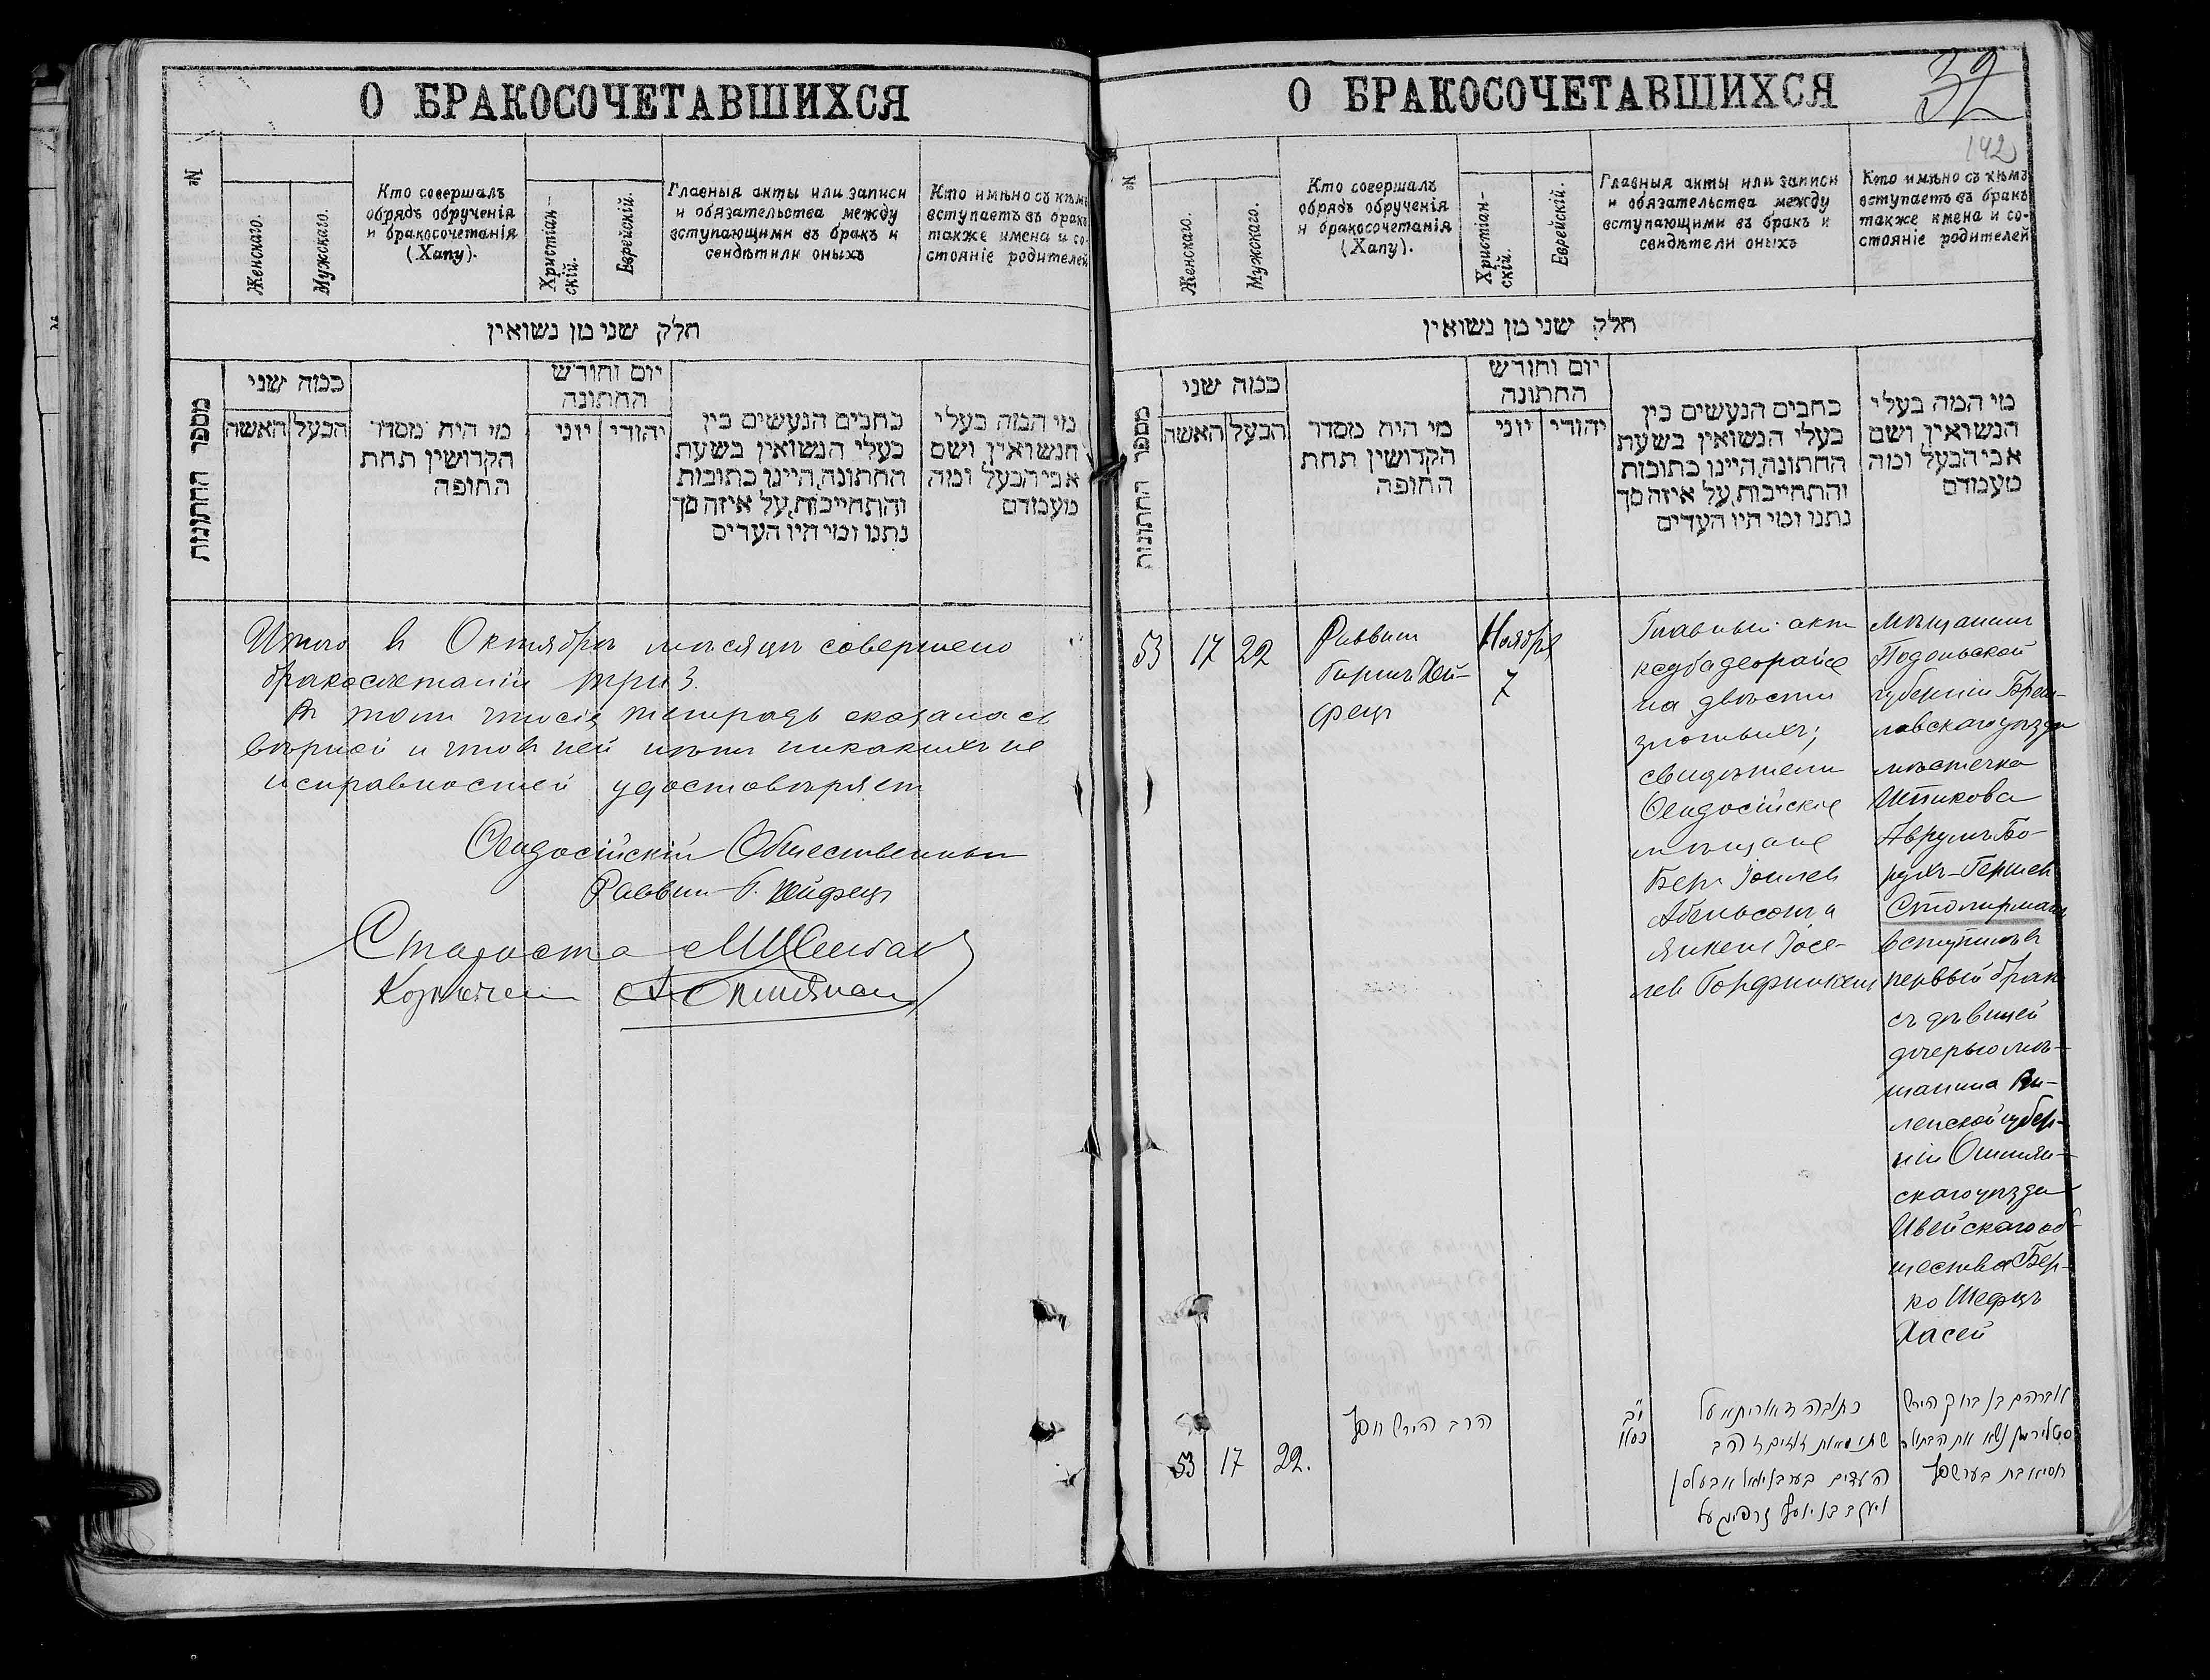 О БРАКОСОЧЕТАВШИХСЯ
№
Женскаго.
Мужскаго.
Кто совершалъ
обрядъ обрученія
и бракосочетанія
(Хапу).
Христіан-
скій.
Еврейскій.
Главныя акты или записи
и обязательства между
вступающими въ бракъ и
свидѣтили оныхъ
Кто имѣно съ кѣмъ
вступаетъ въ бракъ
также имена и со-
стояніе родителей
חלק שני מן נשואין
מספר החתונות
כמה שני
האשה
הבעל
מי הית מסדר
הקדושין תחת
החופה
יום וחורש
החתונה
יוני
יהודי
כתבים הנעשים בין
בעלי הנשואין בשעת
החתונה, היינו כתובות
והתחייבות, על איזה סך
נתנו ומי היו העדים
מי המה בעלי
הנשואין ושם
אבי הבעל ומה
מעמדם
Итого въ Октябрѣ мѣсяцѣ совершено
бракосочетаній три 3.
А тетрадь оказалась
вѣрной и что въ ней нѣтъ никакихъ не
исправностей удостовѣряетъ
Ѳеодосійскій Общественный
Раввинъ Г. Хейфецъ
Староста
Казначей
О БРАКОСОЧЕТАВШИХСЯ
32
142
№
Женскаго.
Мужскаго.
Кто совершалъ
обрядъ обрученія
и бракосочетанія
(Хапу).
Христіан-
скій.
Еврейскій.
Главныя акты или записи
и обязательства между
вступающими въ бракъ и
свидѣтели оныхъ
Кто имѣно съ кѣмъ
вступаетъ въ бракъ
также имена и со-
стояніе родителей
חלק שני מן נשואין
מספר החתונות
כמה שני
האשה
הבעל
מי הית מסדר
הקדושין תחת
החופה
יום וחורש
החתונה
יוני
יהודי
כתבים הנעשים בין
בעלי הנשואין בשעת
החתונה, היינו כתובות
והתחייבות, על איזה סך
נתנו ומי היו העדים
מי המה בעלי
הנשואין ושם
אבי הבעל ומה
מעמדם
53 17 22
Раввинъ
Гиршъ Хей-
фецъ
Ноября
7
Главный актъ
кедбадеорайсе
на двѣсти
злотыхъ;
свидѣтели
Ѳеодосійскіе
мѣщане
Беръ Іоилевъ
Абельсонъ и
Янкель Іосе-
левъ Горфинкель
Мѣщанинъ
Подольской
губерніи Брац-
лавскаго уѣзда
мѣстечка
Шпикова
Аврумъ Бо-
рухъ-Гершев
Столирманъ
вступилъ въ
первый бракъ
съ дѣвицей
дочерью мѣ-
щанина Ви-
ленской губер-
ніи Ошмян-
скаго уѣзда
Ивейскаго об-
щества Бер-
ко Шефцъ
Хасей
53 17 22.
הרב הירש חפץ
י״ב
כסלו
כתובה דאוריתא על
שתי מאות זהב
העדים בער בן יואל אבעלסן
ויעקב בן יוסף גרפינקעל
אברהם בן ברוך הירש
סטלירמן נשא את הבתולה
חסיא בת בער שפץ